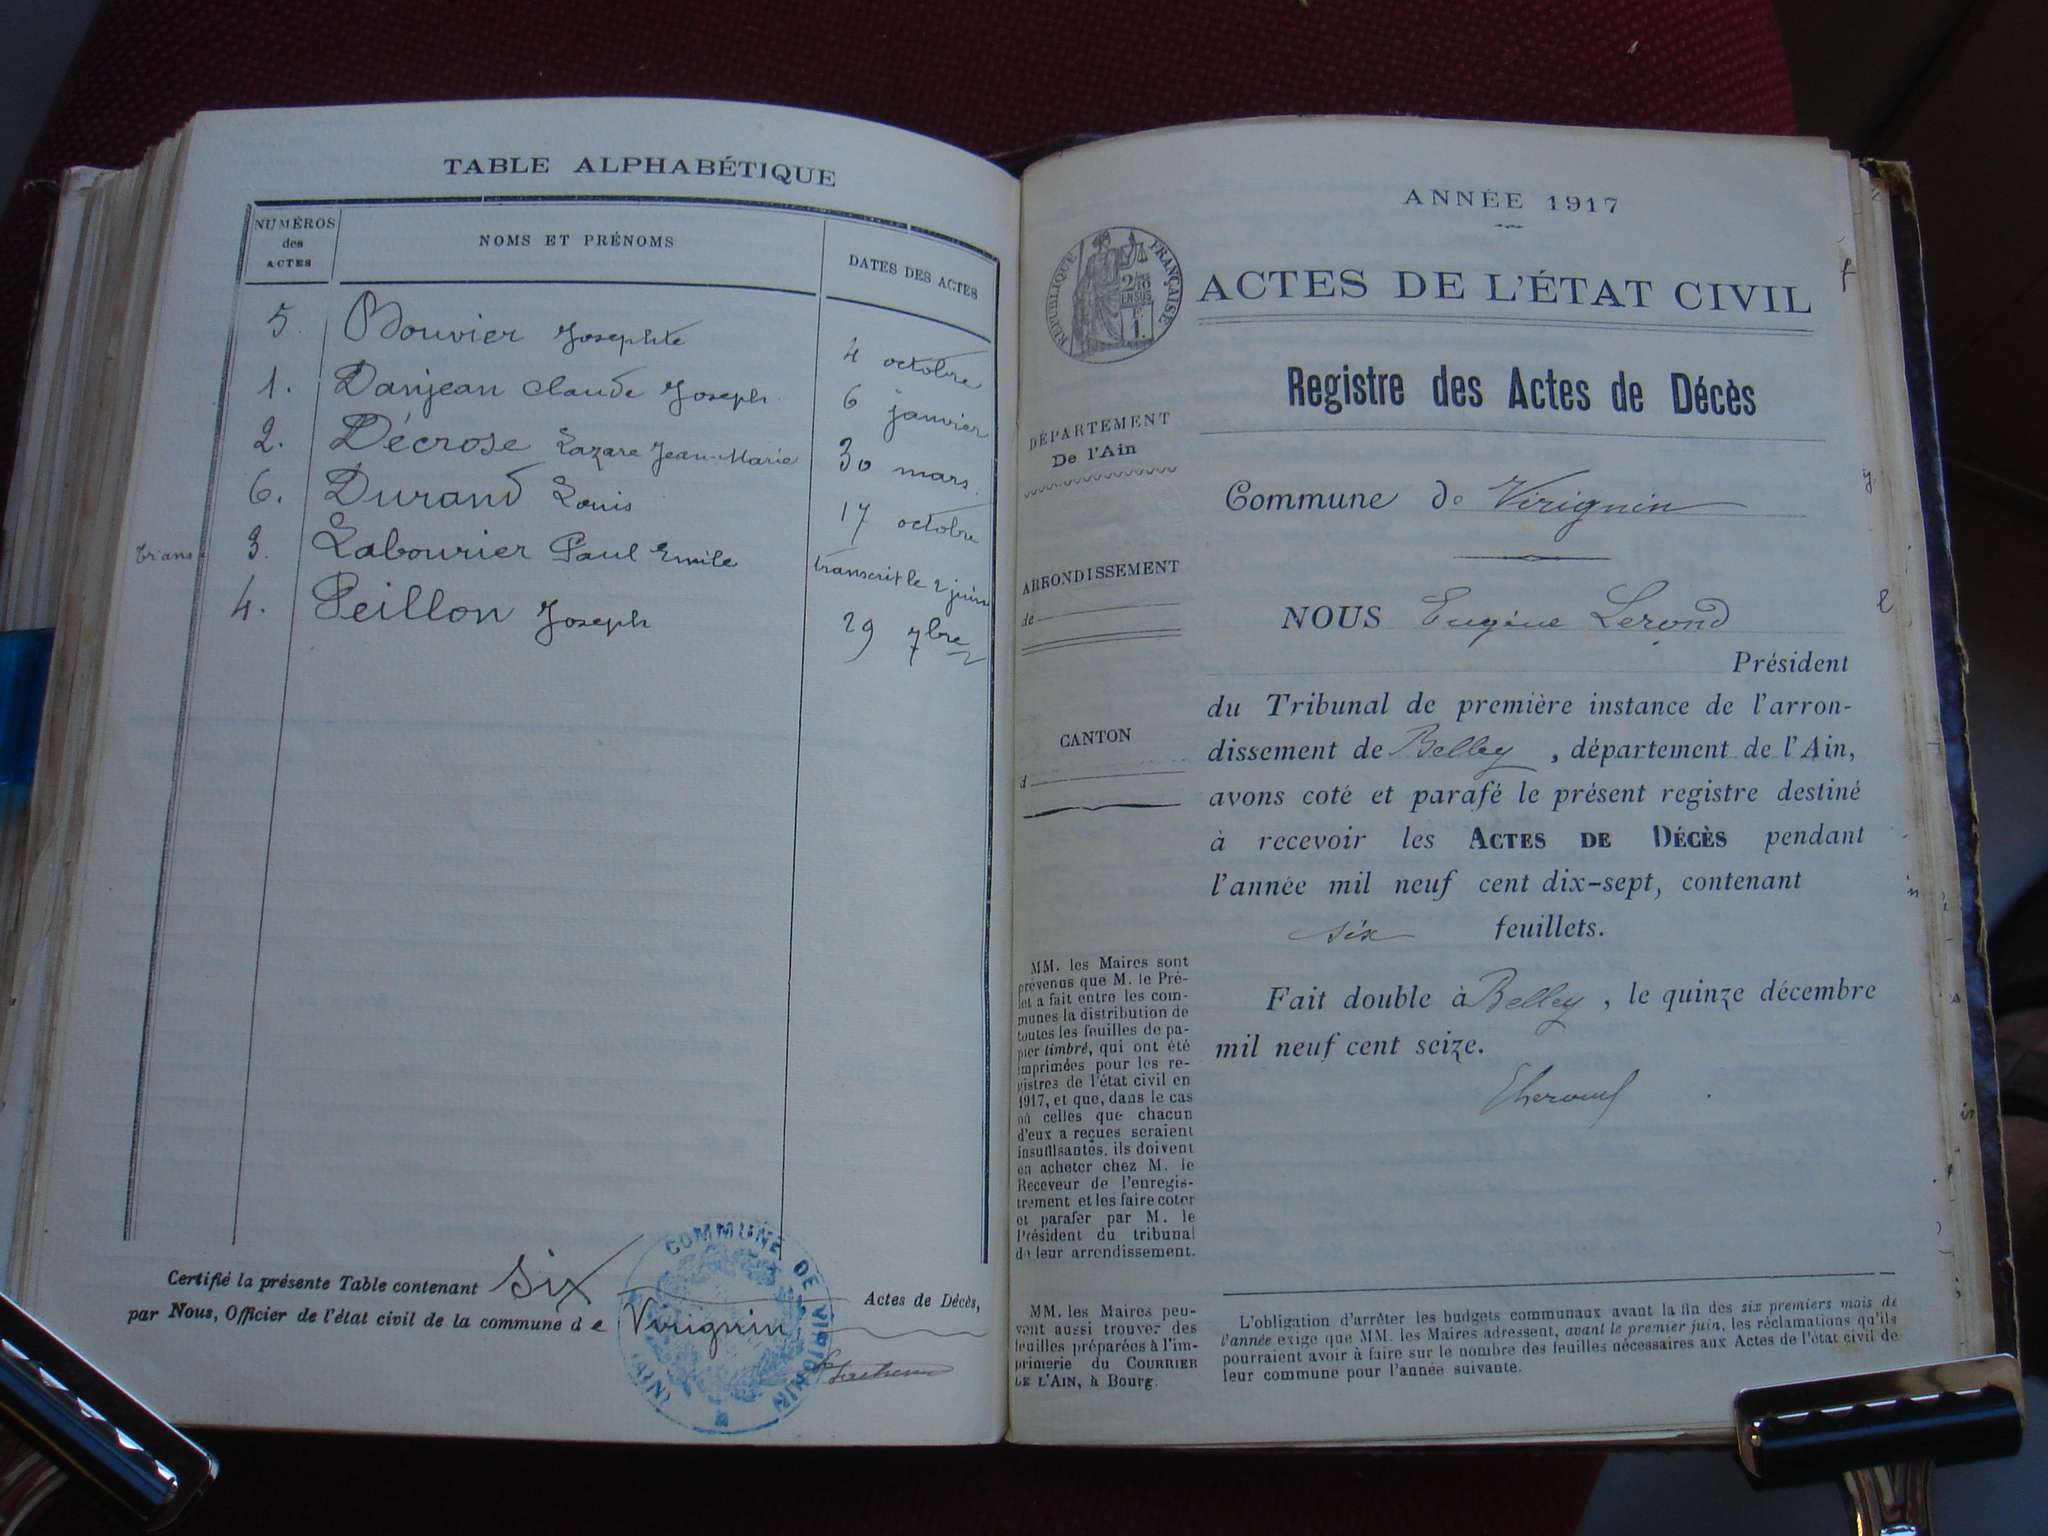 TABLE ALPHABÉTIQUE
NUMÉROS
des
ACTES
NOMS ET PRÉNOMS
DATES DES ACTES
5. Bouvier Josephte 4 octobre
1. Danjean Claude Joseph. 6 janvier
2. Décrose Lazare Jean-Marie 30 mars.
6. Durand Louis 17 octobre
trans 3. Labourier Paul Emile transcrit le 2 juin
4. Peillon Joseph 29 7bre
Certifié la présente Table contenant six Actes de Décès,
par Nous, Officier de l'état civil de la commune de Virignin
COMMUNE DE VIRIGNIN
(AIN)
ANNÉE 1917
RÉPUBLIQUE FRANÇAISE
2/10
EN SUS
1.
ACTES DE L'ÉTAT CIVIL
Registre des Actes de Décès
DÉPARTEMENT
De l'Ain
Commune de Virignin
ARRONDISSEMENT
de
NOUS Eugène Lerond
Président
du Tribunal de première instance de l'arron-
dissement de Belley, département de l'Ain,
CANTON
d
avons coté et parafé le présent registre destiné
à recevoir les ACTES DE DÉCÈS pendant
l'année mil neuf cent dix-sept, contenant
six feuillets.
Fait double à Belley, le quinze décembre
mil neuf cent seize.
MM. les Maires sont
prévenus que M. le Pré-
fet a fait entre les com-
munes la distribution de
toutes les feuilles de pa-
pier timbré, qui ont été
imprimées pour les re-
gistres de l'état civil en
1917, et que, dans le cas
où celles que chacun
d'eux a reçues seraient
insuffisantes, ils doivent
en acheter chez M. le
Receveur de l'enregis-
trement et les faire coter
et parafer par M. le
Président du tribunal
de leur arrondissement.
MM. les Maires peu-
vent aussi trouver des
feuilles préparées à l'im-
primerie du COURRIER
DE L'AIN, à Bourg.
L'obligation d'arrêter les budgets communaux avant la fin des six premiers mois de
l'année exige que MM. les Maires adressent, avant le premier juin, les réclamations qu'ils
pourraient avoir à faire sur le nombre des feuilles nécessaires aux Actes de l'état civil de
leur commune pour l'année suivante.